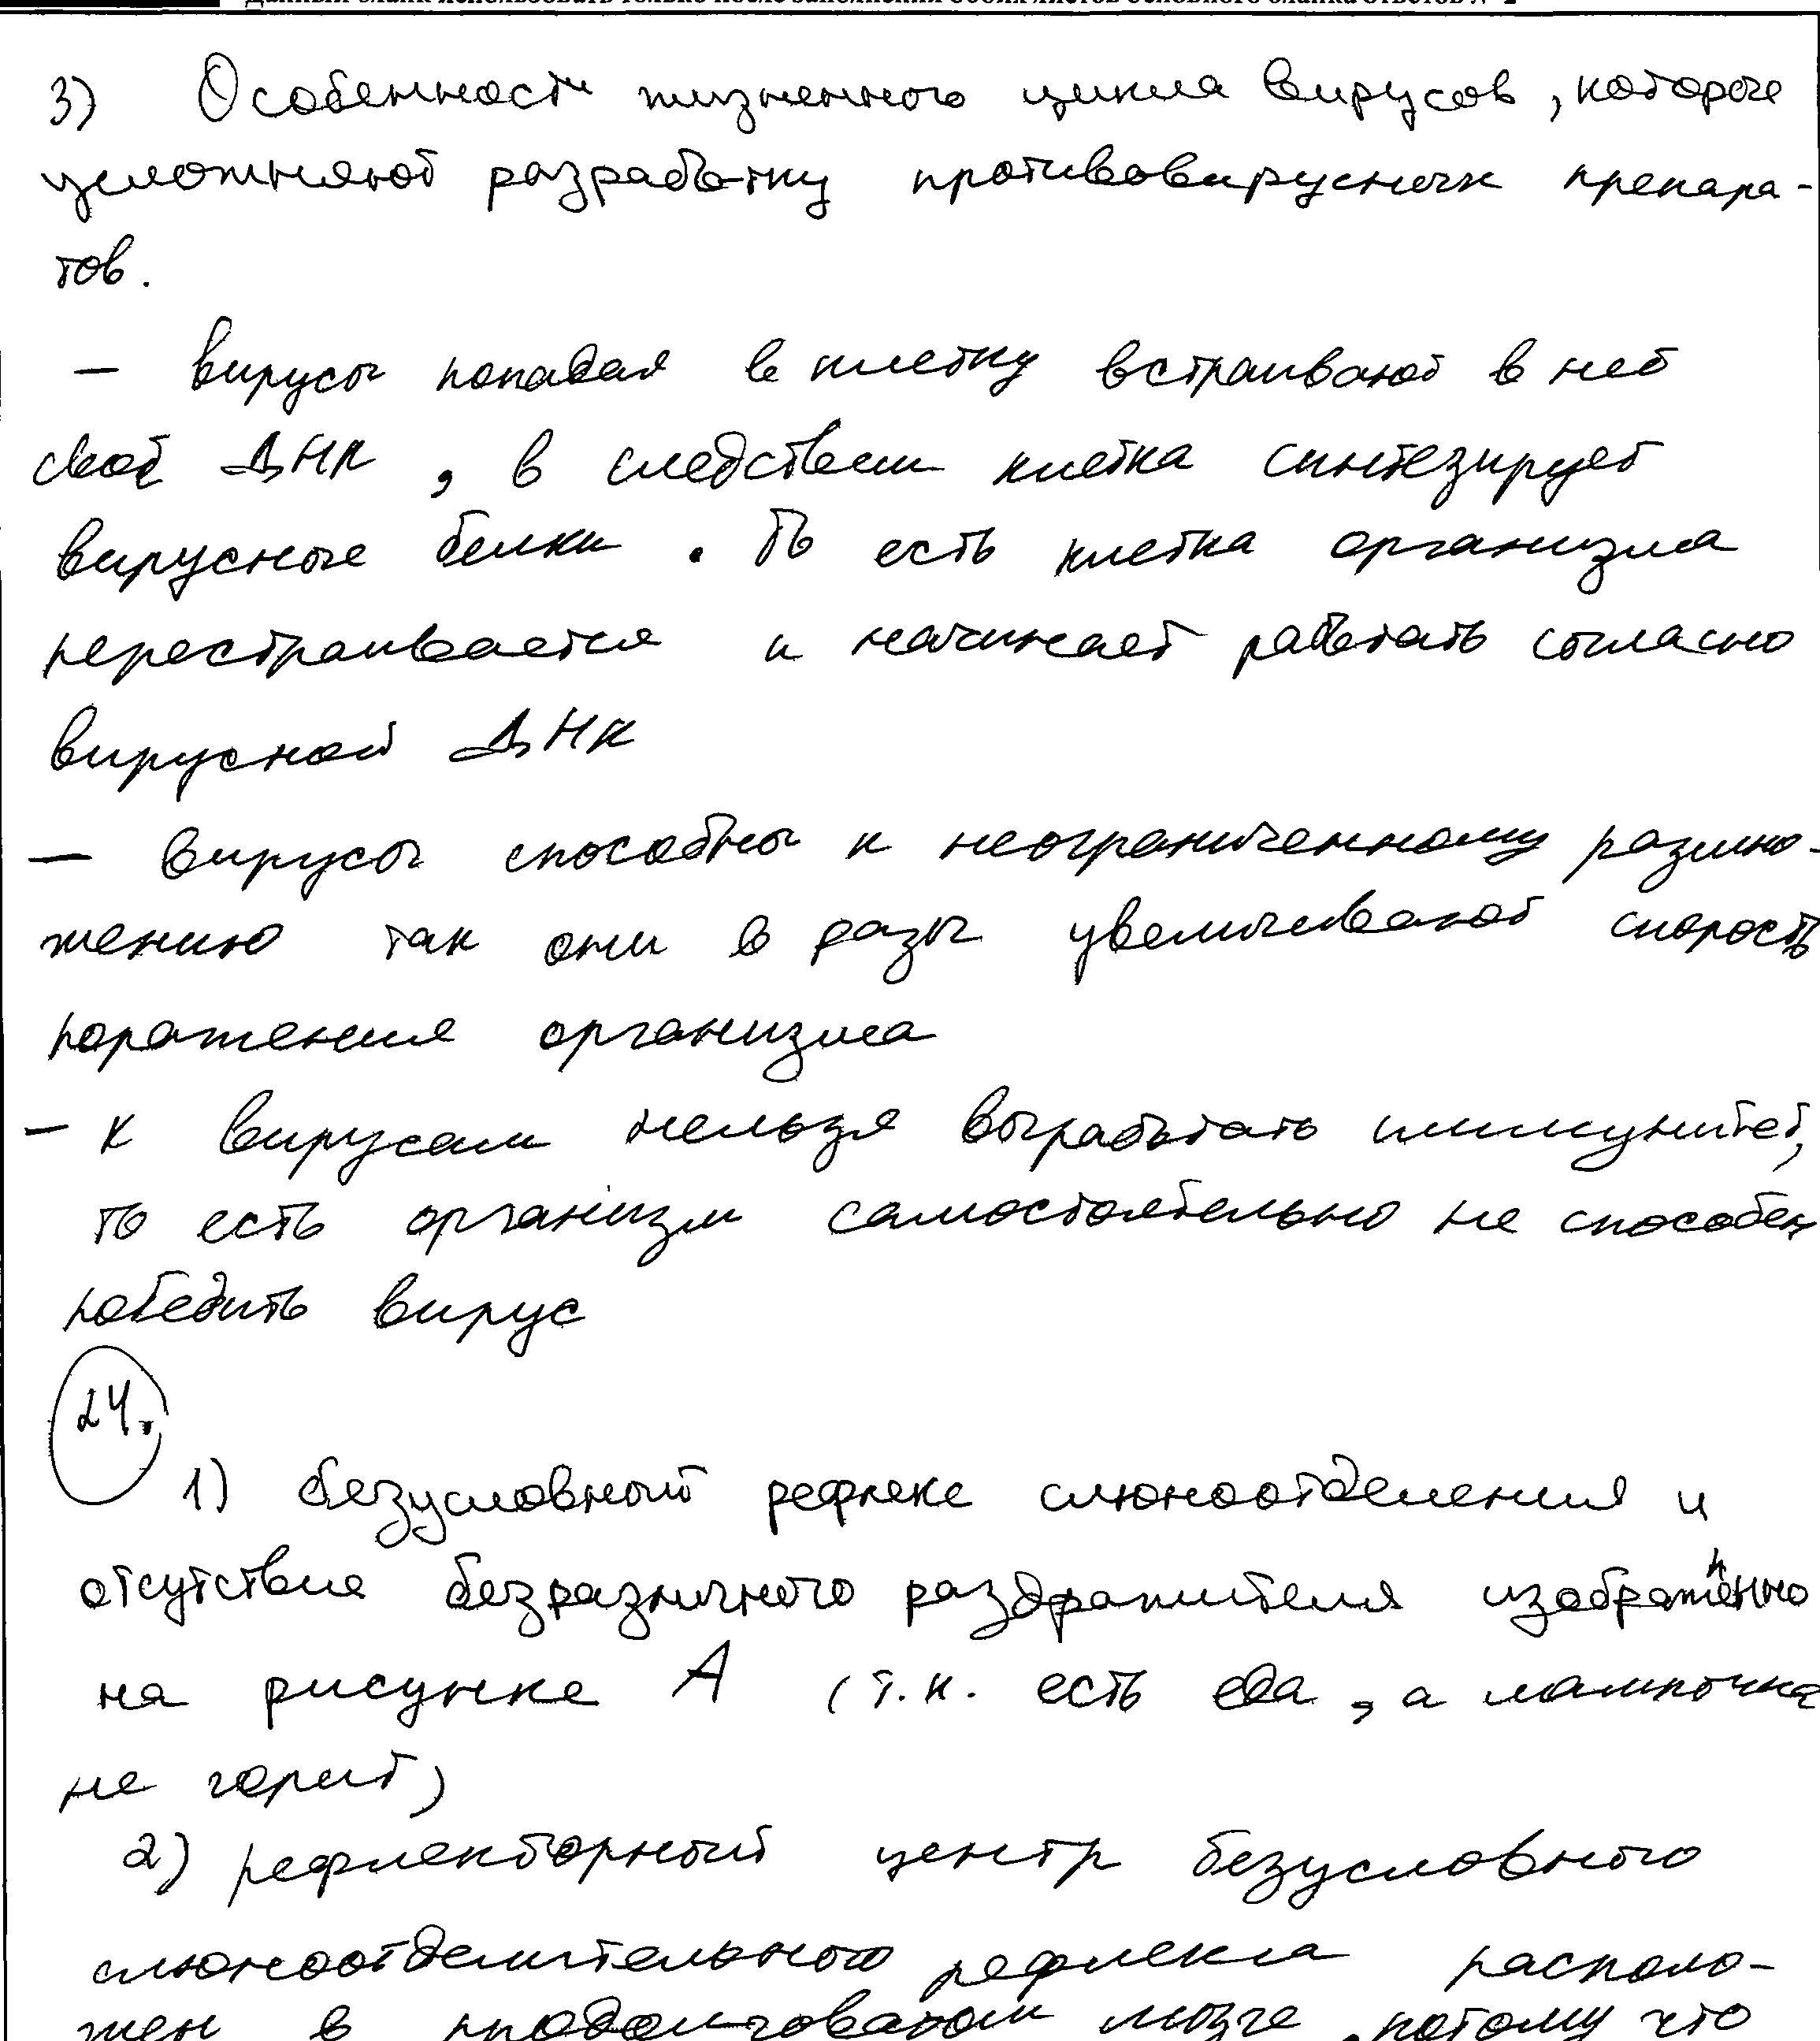 3) Особенности жизненного цикла вирусов, которые
усложняют разработку противовирусных препара-
тов.
— вирусы попадая в клетку встраивают в неё
своё ДНК, в следствеи клетка синтезирует
вирусные белки. То есть клетка организма
перестраивается и начинает работать согласно
вирусной ДНК
— вирусы способны к неограниченному размно-
жению так они в разы увеличивают скорость
поражения организма
- к вирусам нельзя выработать иммунитет,
то есть организм самостоятельно не способен
победить вирус
24.
1) безусловный рефлекс слюноотделения и
отсутствие безразличного раздражителя изображенно
на рисунке А (т.к. есть еда, а лампочка
не горит)
2) рефлекторный центр безусловного
слюноотделительного рефлекса располо-
жен в продолговатом мозге, потому что